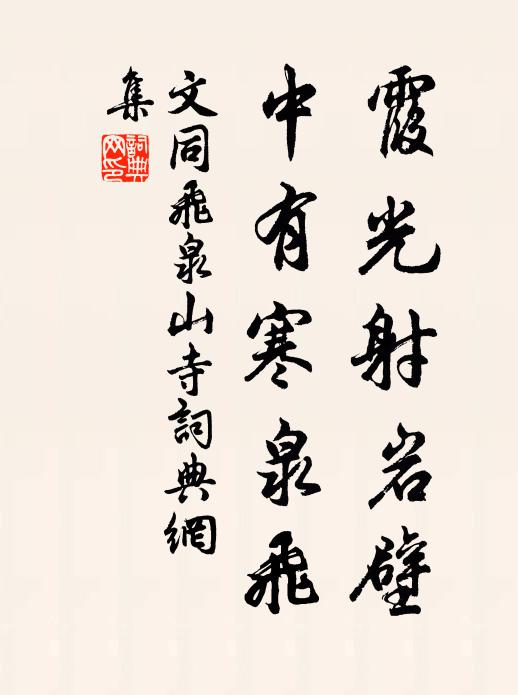 霞光射岩壁
中有寒泉飛
文同飛泉山寺詞典網
集
詞典網印